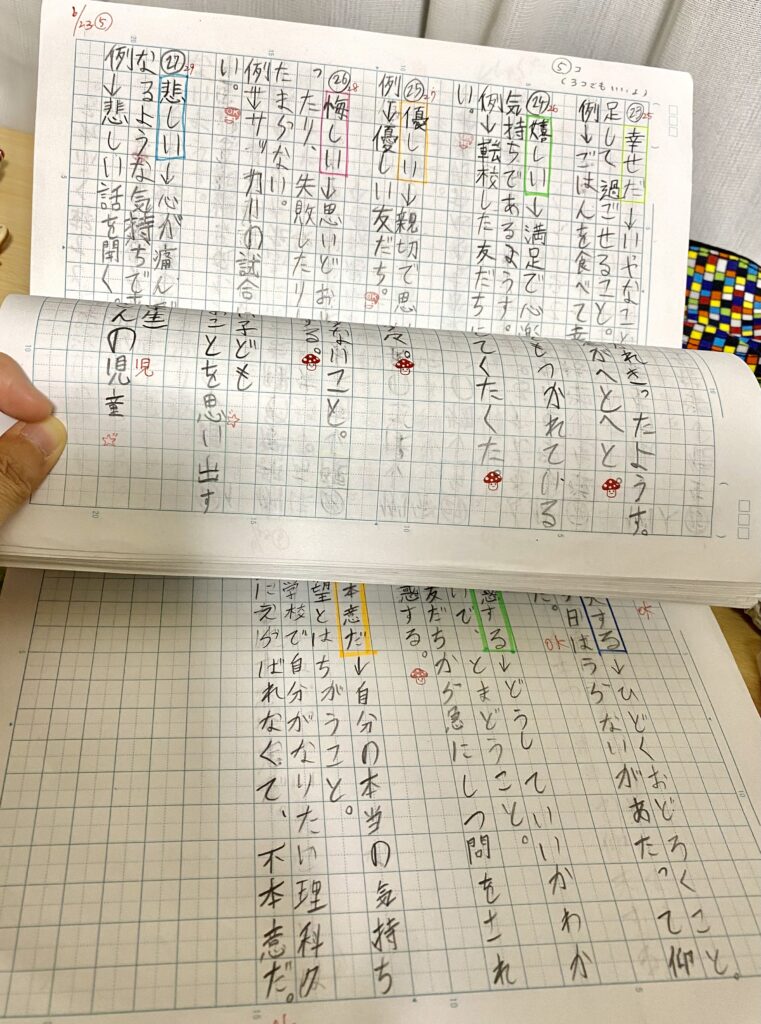 23⑤
⑤コ
(3つでもいいよ)
㉓25 幸せだ→いやなこと
足して過ごせること。
例→ごはんを食べて幸
㉔26 嬉しい→満足で心
気持ちであるようす。
例→転校した友だち
い。
㉕27 優しい→親切で思
例→優しい友だち。
㉖28 悔しい→思いどお
ったり、失敗したり
たまらない。
例→サッカーの試合
い。
㉗29 悲しい→心が痛んで
なるような気持ちで
例→悲しい話を聞く
れきったようす。
がへとへと
もつかれている
てくたくた
ないこと。
る。
子ども
ことを思い出す
んの児童
児
する→ひどくおどろくこと。
日はうらないがあたって仰
た。
惑する→どうしていいかわか
いで、とまどうこと。
友だちから急にしつ問をされ
惑する。
本意だ→自分の本当の気持ち
望とはちがうこと。
学校で自分がなりたい理科
にえらばれなくて、不本意だ。
OK
OK